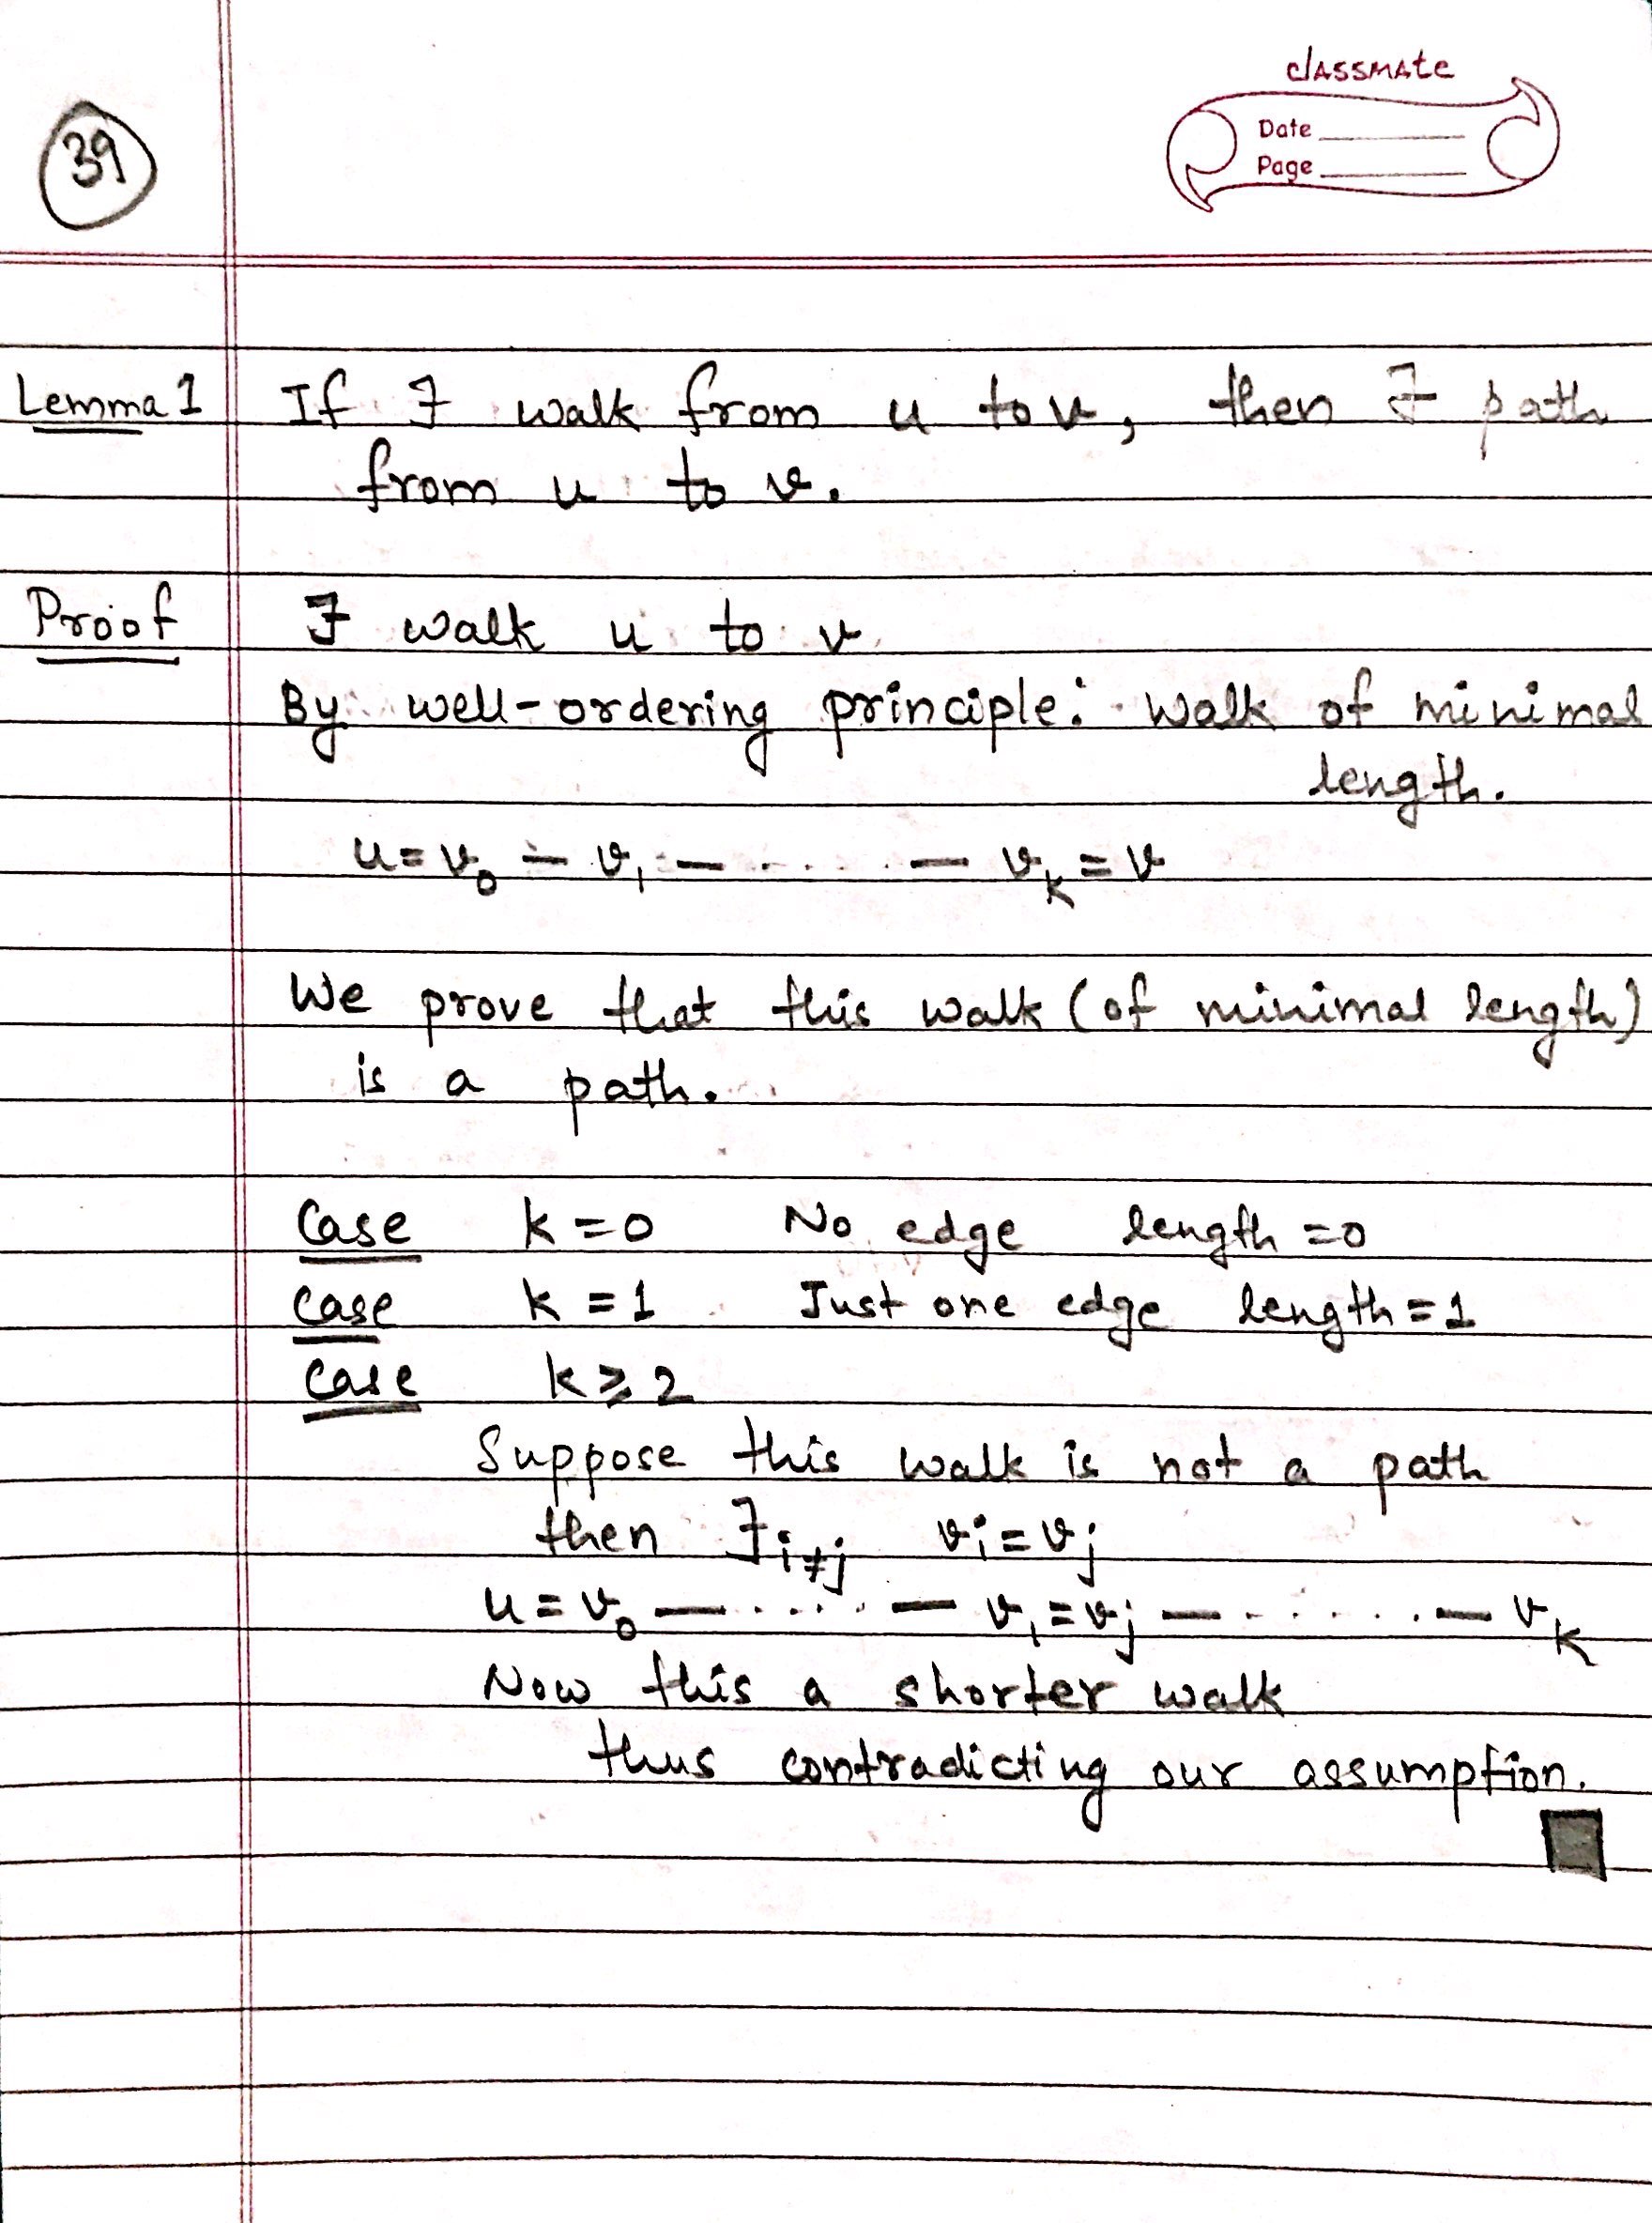 classmate
Date
Page
39
Lemma 1 If ∃ walk from u to v, then ∃ path
from u to v.
Proof ∃ walk u to v
By well-ordering principle: walk of minimal
length.
u=v₀ — v₁ — ..... — vₖ=v
We prove that this walk (of minimal length)
is a path.
Case k=0 No edge length =0
Case k=1 Just one edge length=1
Case k⩾2
Suppose this walk is not a path
then ∃ i≠j vi=vj
u=v₀ — ..... — v₁=vj — ...... — vₖ
Now this a shorter walk
thus contradicting our assumption.